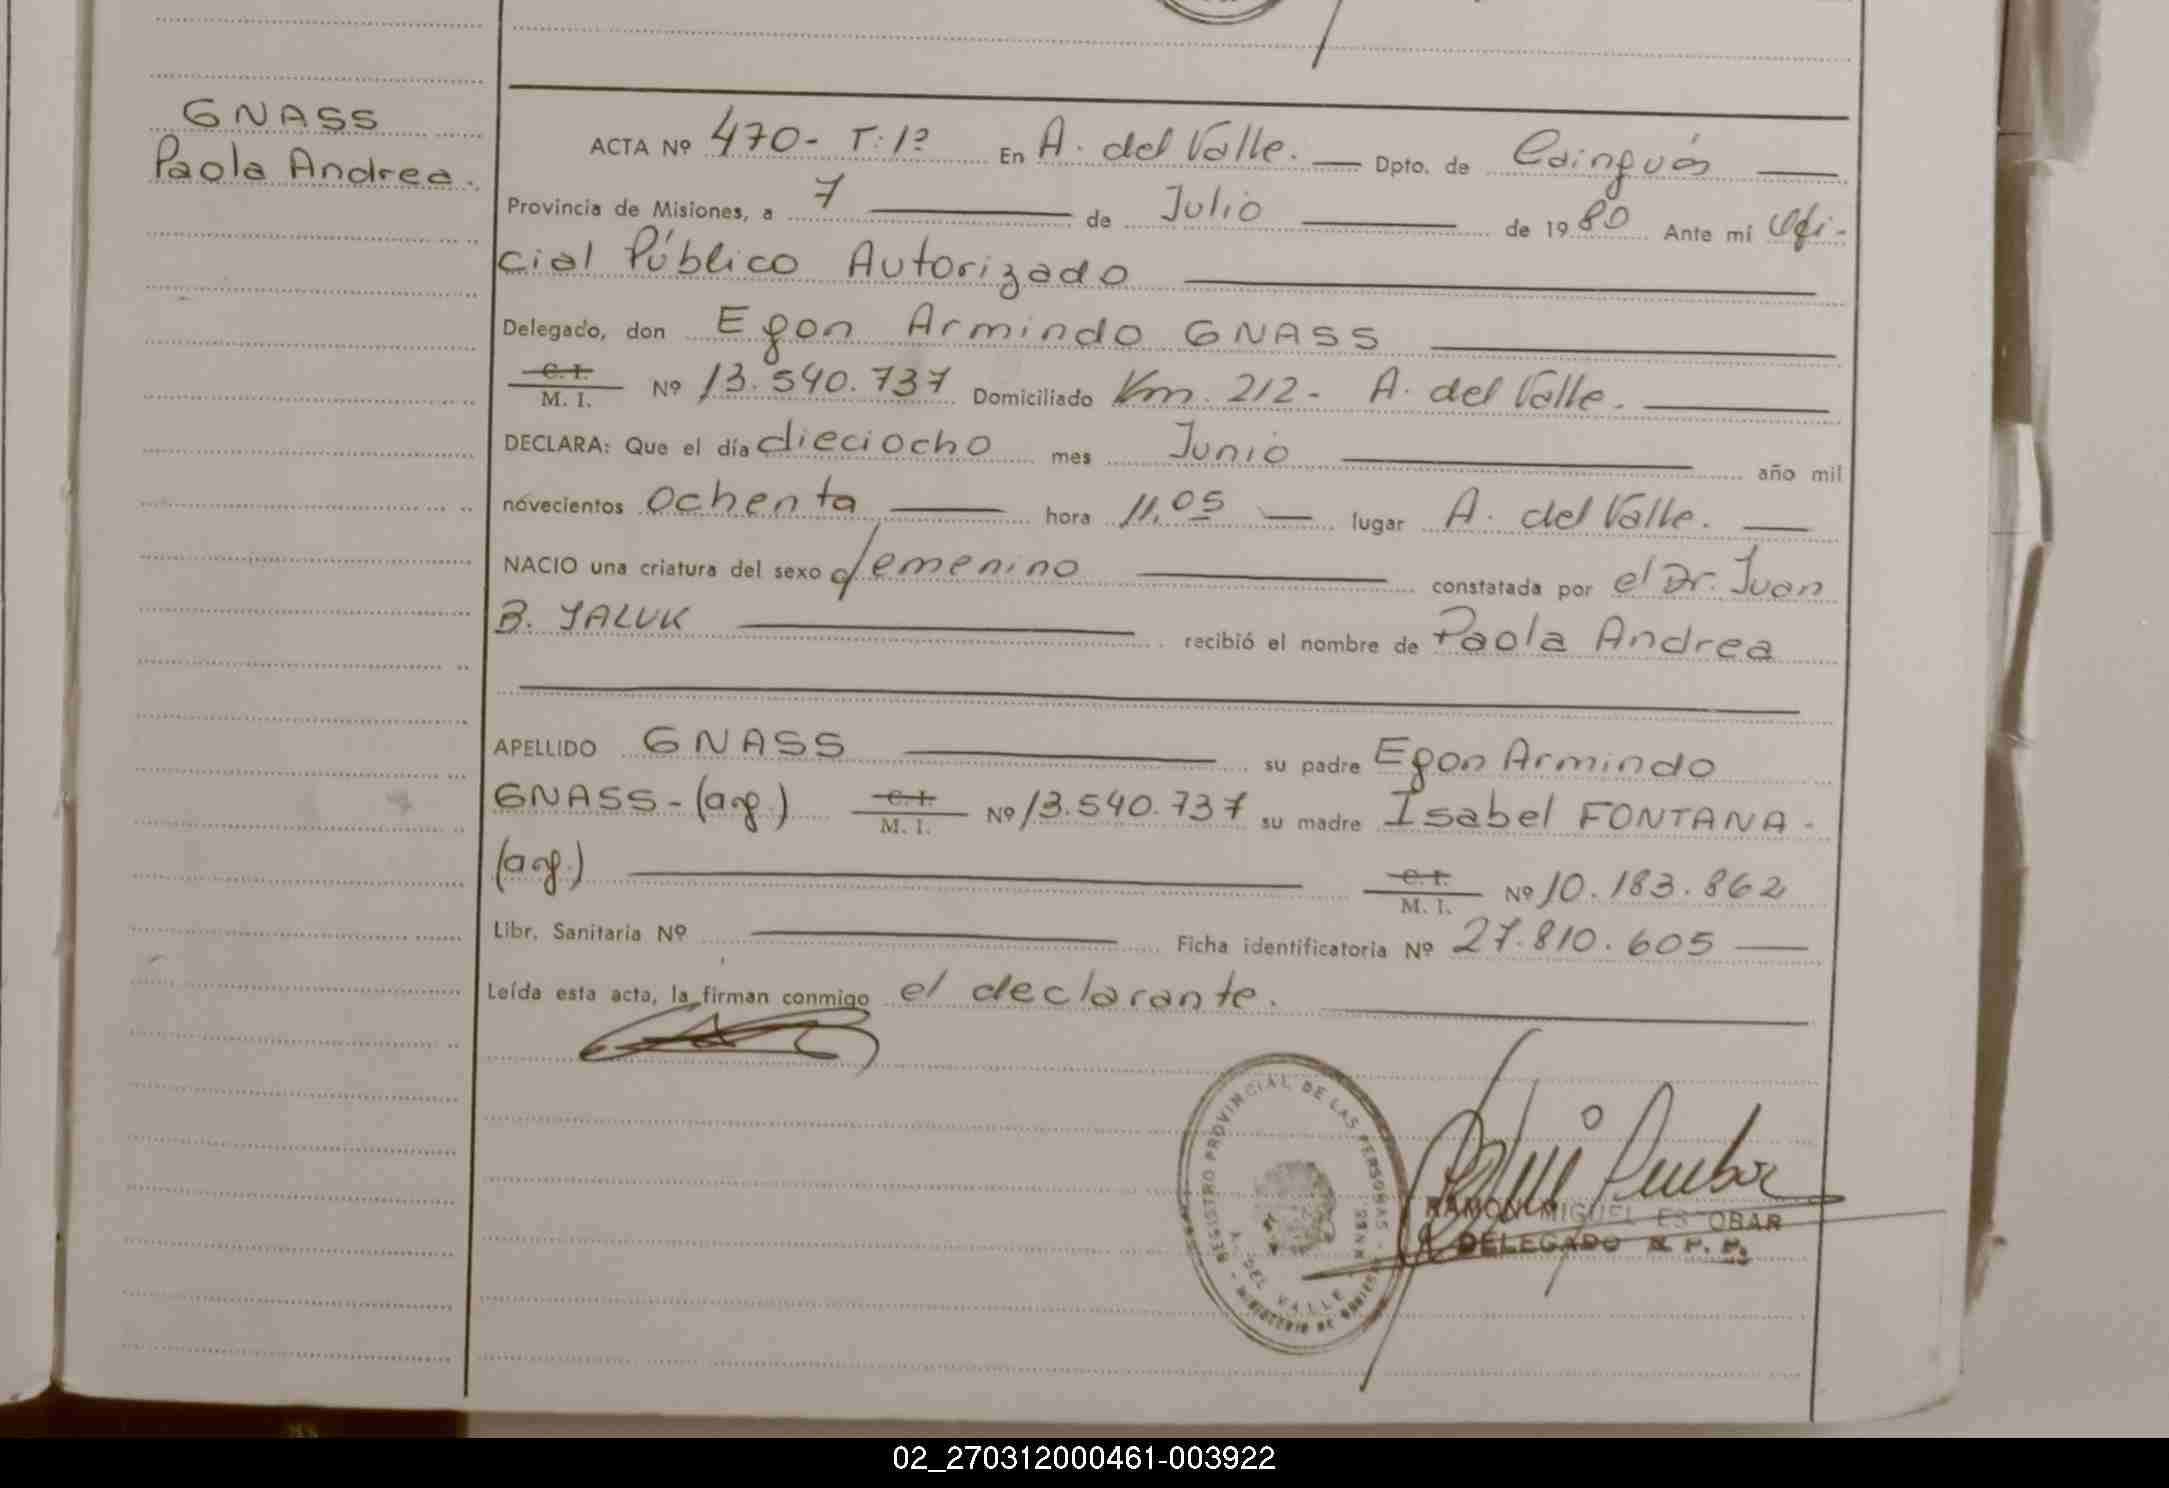 GNASS
Paola Andrea.
ACTA Nº 470- T: 1º En A. del Valle. Dpto. de Cainguás
Provincia de Misiones, a 7 de Julio de 1980 Ante mí Ofi-
cial Público Autorizado
Delegado, don Egon Armindo GNASS
C. I.
M. I. Nº 13.540.737 Domiciliado Km. 212- A. del Valle.
DECLARA: Que el día dieciocho mes Junio año mil
novecientos ochenta hora 11,05 lugar A. del Valle.
NACIO una criatura del sexo femenino constatada por el Dr. Juan
B. YALUK recibió el nombre de Paola Andrea
APELLIDO GNASS su padre Egon Armindo
GNASS-(arg.) C. I. M. I. Nº 13.540.737 su madre Isabel FONTANA-
(arg.) C. I. M. I. Nº 10.183.862
Libr. Sanitaria Nº Ficha identificatoria Nº 27.810.605
Leída esta acta, la firman conmigo el declarante.
REGISTRO PROVINCIAL DE LAS PERSONAS
A. DEL VALLE
MINISTERIO DE GOBIERNO
RAMON MIGUEL ESCOBAR
DELEGADO R. P. P.
02_270312000461-003922